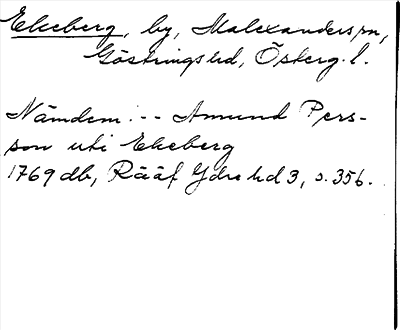 Ekeberg, by, Malexanders sn,
Göstrings hd, Österg. l.
Nämdem. -- Amund Pers-
son uti Ekeberg
1769 db, Rääf Ydre hd 3, s. 356.